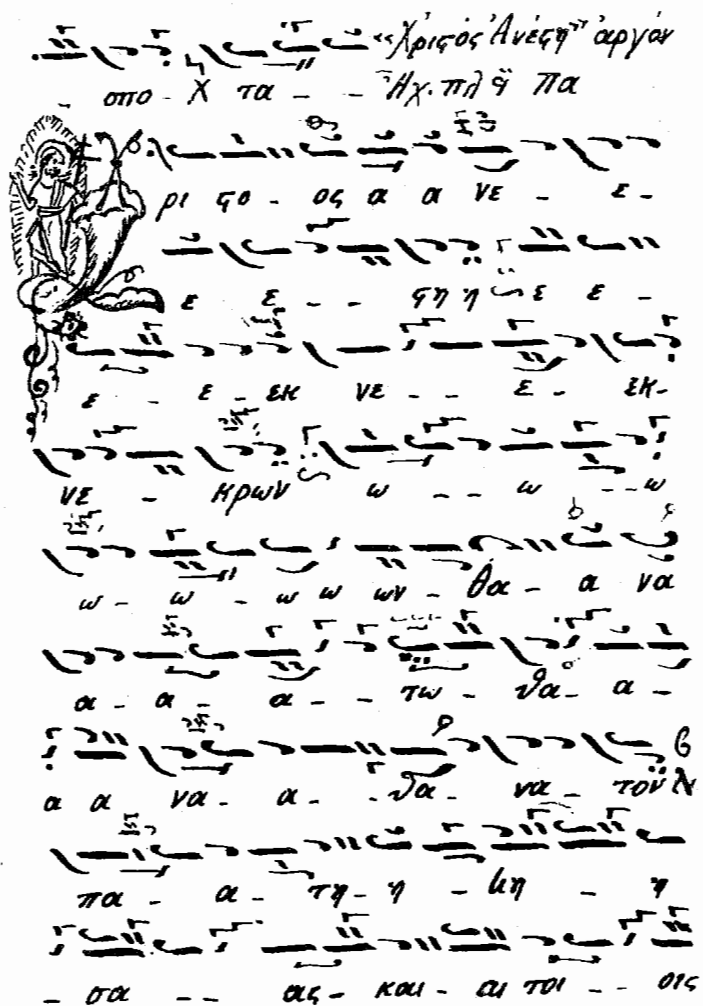 "Χριϛός Ἀνέϛη" ἀργόν
- οπο - Χ τα - - Ἦχ. πλ ᾳ Πα
ρι ϛο - ος α α νε - ε -
ε ε - - ϛη η ε ε -
ε - - ε - εκ νε - - ε - εκ -
νε - κρων ω - - ω - - ω
ω - ω - ω ω ων - θα - α να
α - α - α - - τω - θα - α -
α α να - α - - θα - να - τον
πα - α - τη - η - μη - η
- σα - - ας - και - αι τοι - - οις